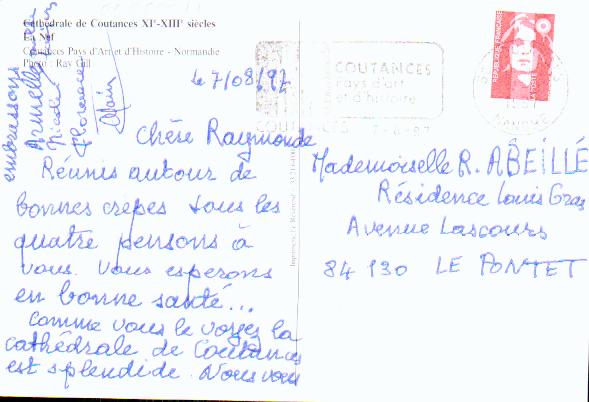 Cathédrale de Coutances XIe-XIIIe siècles
La Nef
Coutances Pays d'Art et d'Histoire - Normandie
Photo : Ray Gill
le 7/08/97
Chère Raymonde
Réunis autour de
bonnes crepes tous les
quatre pensons à
vous. Vous esperons
en bonne santé...
Comme vous le voyez la
cathédrale de Coutances
est splendide. Nous vous
embrassons
Armelle
Nicole
Florence
Alain
COUTANCES
pays d'art
et d'histoire
COUTANCES 7-8-97
MANCHE
REPUBLIQUE FRANÇAISE
LA POSTE
Mademoiselle R. ABEILLÉ
Résidence Louis Gras
Avenue Lascours
84 130 LE PONTET